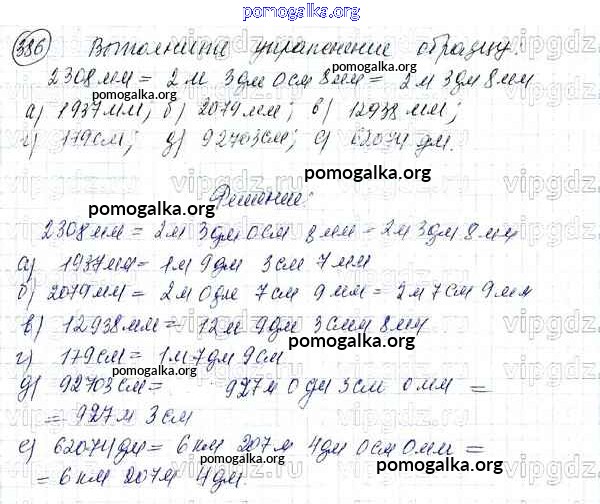 pomogalka.org
386 Выполните упражнение образцу:
2308мм = 2м 3дм 0см 8мм = 2м 3дм 8мм
pomogalka.org
а) 1937мм; б) 2079мм; в) 12938мм;
г) 179см; д) 92703см; е) 62074дм.
pomogalka.org
Решение:
pomogalka.org
2308мм = 2м 3дм 0см 8мм = 2м 3дм 8мм
pomogalka.org
а) 1937мм = 1м 9дм 3см 7мм
б) 2079мм = 2м 0дм 7см 9мм = 2м 7см 9мм
pomogalka.org
в) 12938мм = 12м 9дм 3см 8мм
г) 179см = 1м 7дм 9см
pomogalka.org
д) 92703см = 927м 0дм 3см 0мм =
= 927м 3см
pomogalka.org
е) 62074дм = 6км 207м 4дм 0см 0мм =
= 6км 207м 4дм
pomogalka.org
vipgdz.com